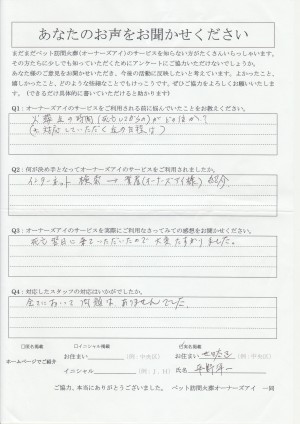 あなたのお声をお聞かせください
まだまだペット訪問火葬(オーナーズアイ)のサービスを知らない方がたくさんいらっしゃいます。
その方たちに少しでも知っていただくためにアンケートにご協力いただけないでしょうか。
あなた様のご意見をお聞かせいただき、今後の活動に反映したいと考えています。よかったこと、
嬉しかったこと、どのような些細なことでもけっこうです。ぜひご協力をよろしくお願いいたしま
す。(できるだけ具体的に書いていただけると助かります)
Q1:オーナーズアイのサービスをご利用される前に悩んでいたことをお教えください。
火葬 の時間
Q2:何が決め手となってオーナーズアイのサービスをご利用されましたか。
インターネット 検索 → (オーナーズアイ様) 紹介
Q3:オーナーズアイのサービスを実際にご利用なさってみての感想をお聞かせください。
死亡翌日に来ていただいたので大変たすかりました。
Q4:対応したスタッフの対応はいかがでしたか。
全てにおいて問題はありませんでした。
□匿名掲載 □イニシャル掲載 ☑実名掲載
ホームページでご紹介
お住まい (例:中央区) お住まい (例:中央区)
イニシャル (例:J.H) 氏名
ご協力、本当にありがとうございました。 ペット訪問火葬オーナーズアイ 一同